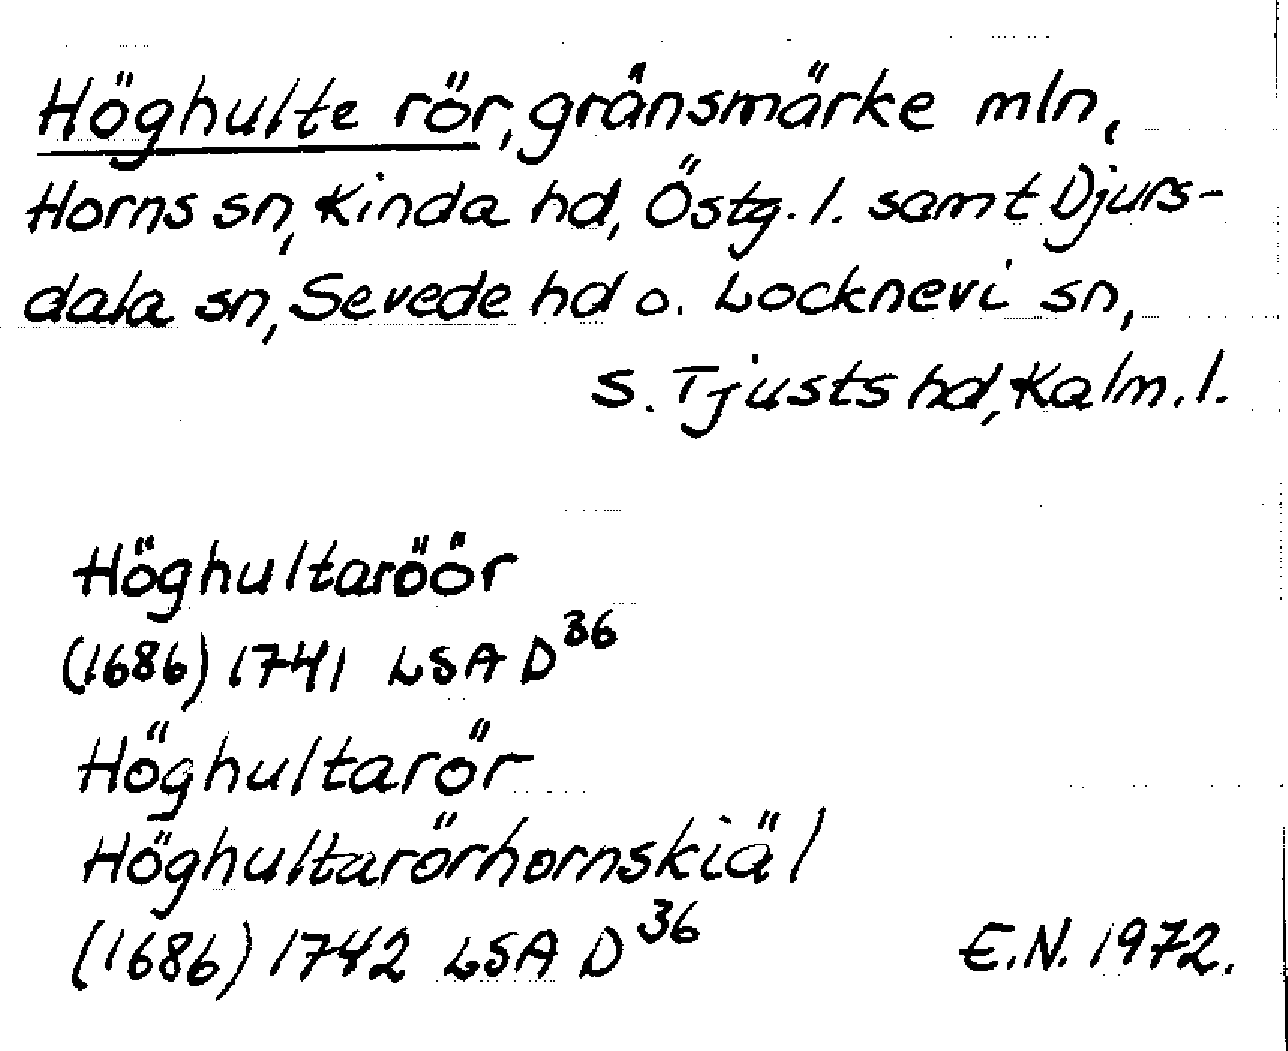 Höghulte rör, gränsmärke mln,
Horns sn, Kinda hd, Östg. l. samt Djurs-
dala sn, Sevede hd o. Locknevi sn,
S. Tjusts hd, Kalm. l.
Höghultaröör
(1686) 1741 LSA D36
Höghultarör
Höghultarörhornskiäl
(1686) 1742 LSA D36
E.N. 1972.